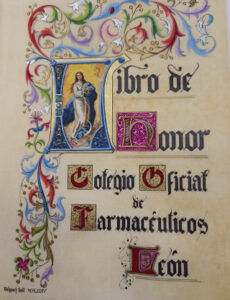 Libro de
Honor
Colegio Oficial
de
Farmacéuticos
León